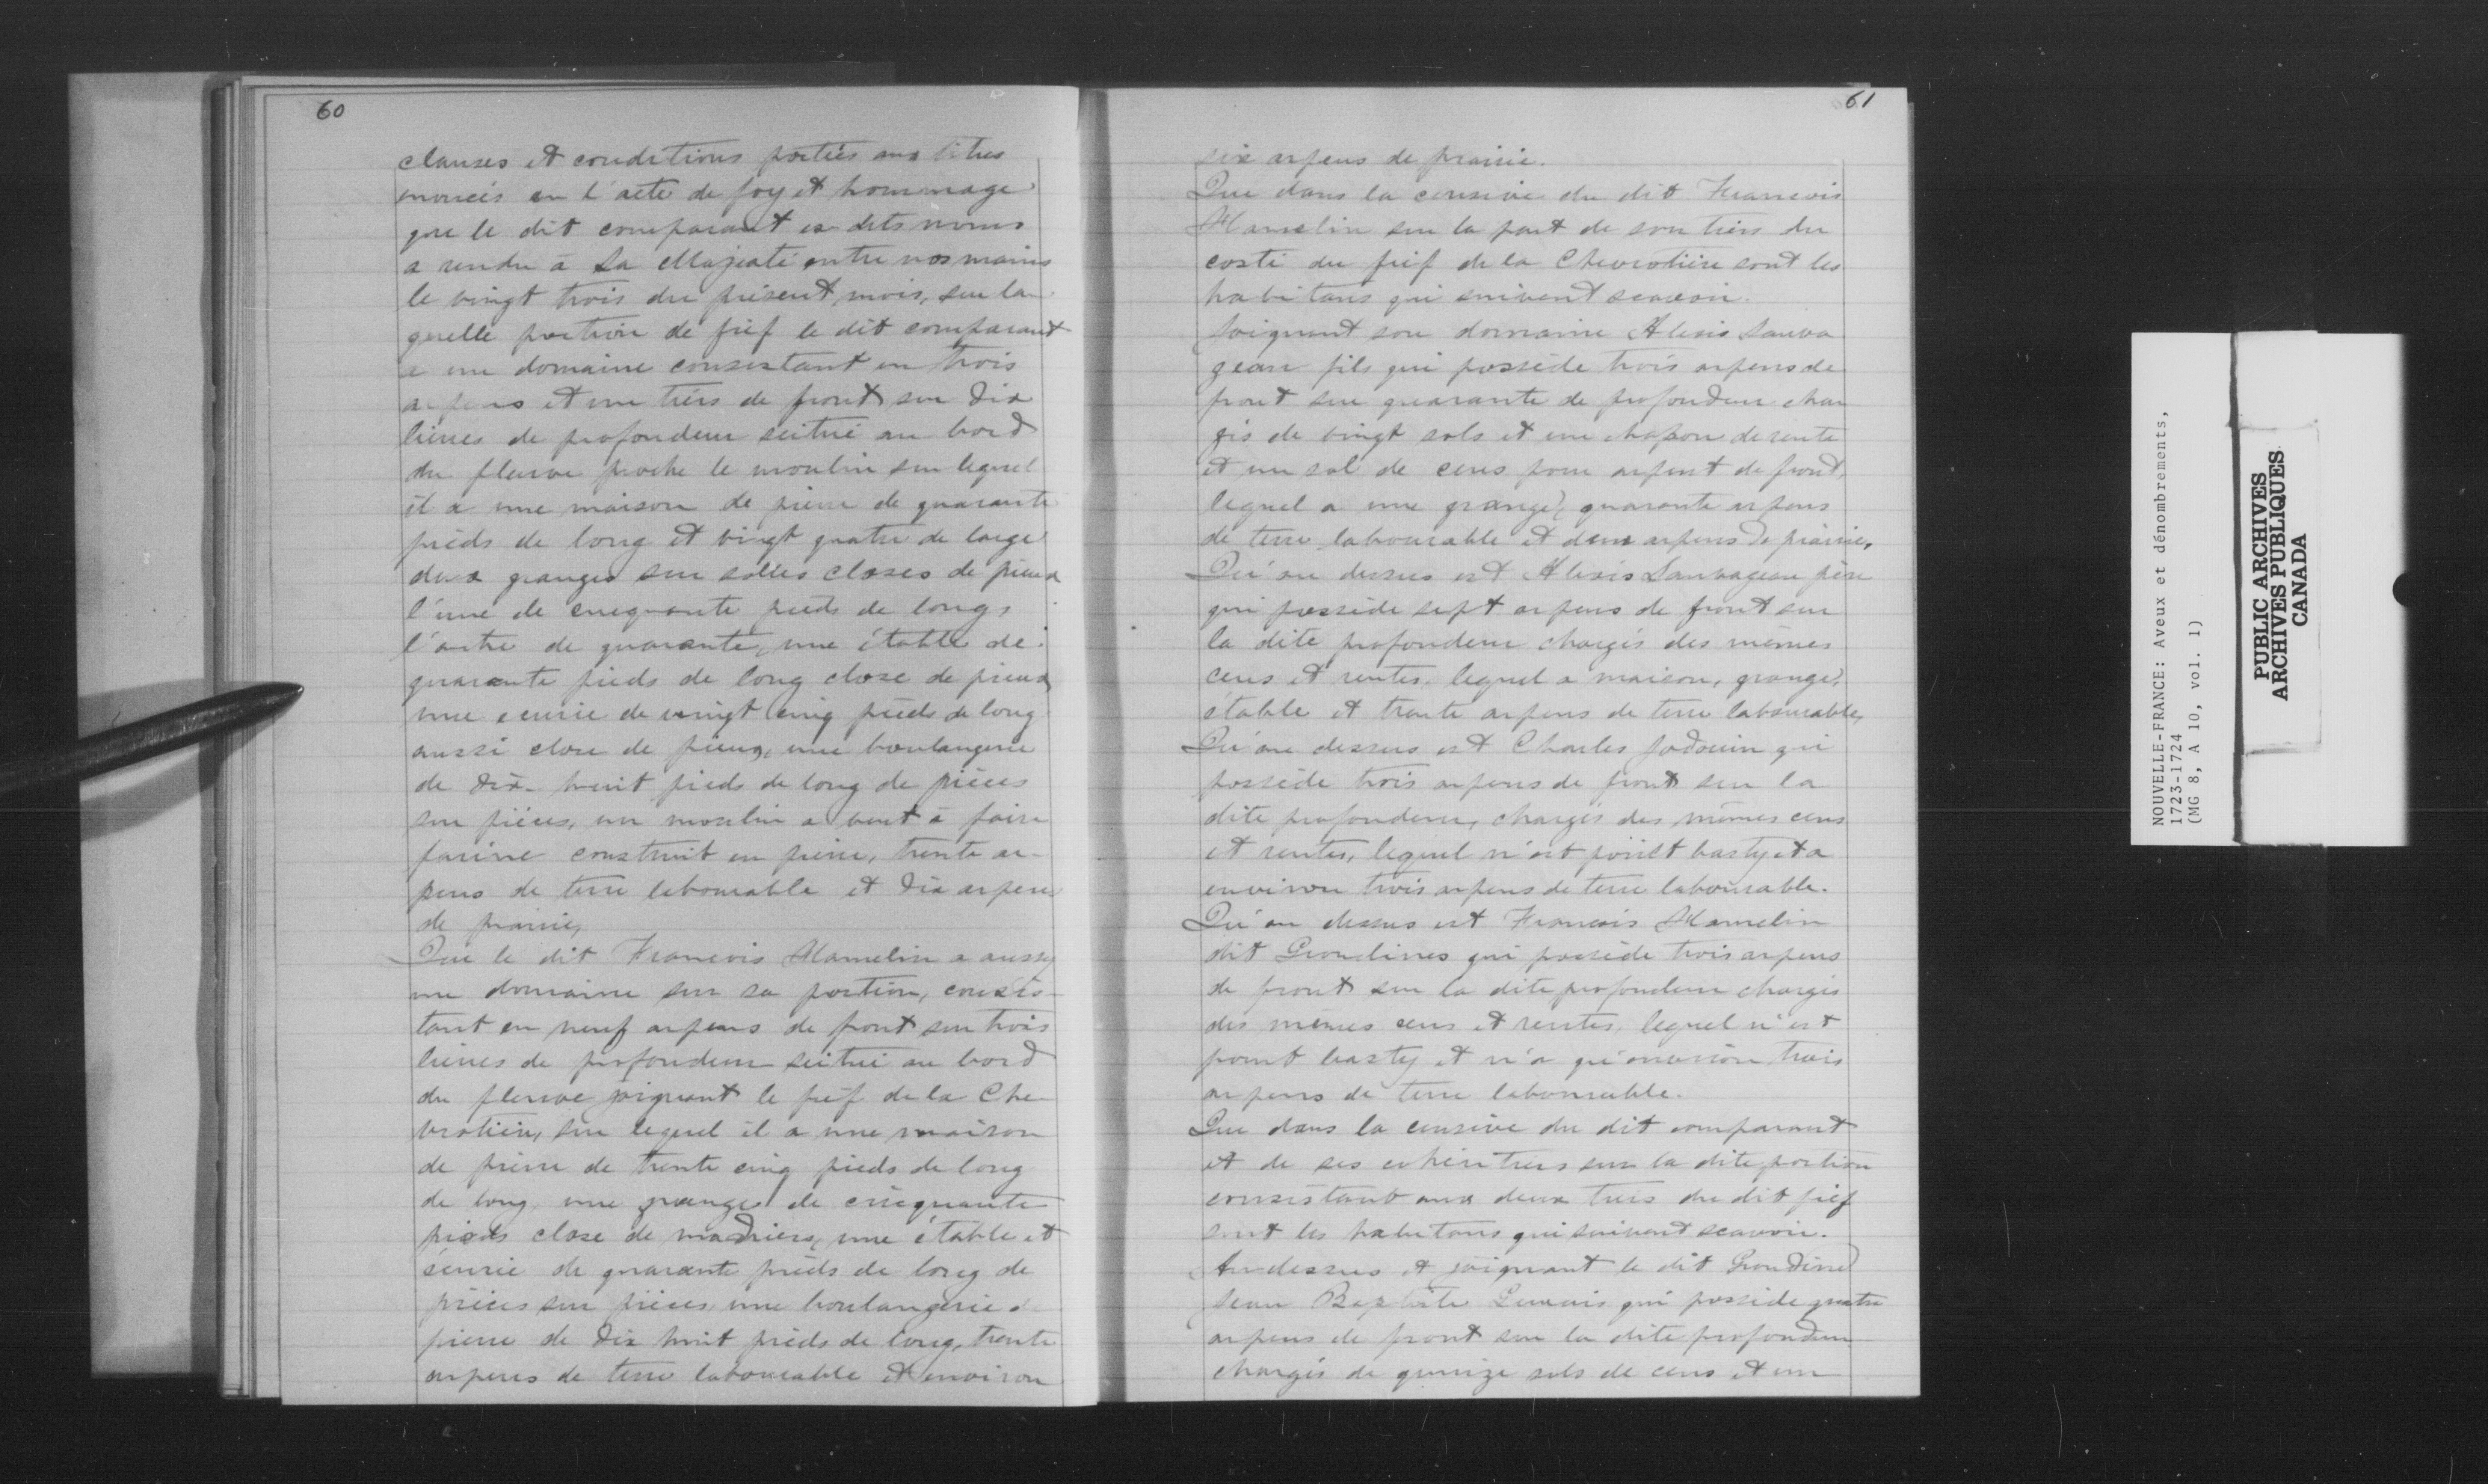 60
clauses et conditions portées aux titres
énoncés en l'acte de foy et hommage
que le dit comparant es dits noms
a rendu à Sa Majesté entre nos mains
le vingt trois du présent mois, sur la
quelle portion de fief le dit comparant
a un domaine consistant en trois
arpens et un tiers de front sur dix
lieues de profondeur scitué au bord
du fleuve proche le moulin sur lequel
il a une maison de pierre de quarante
pieds de long et vingt quatre de large
deux granges sur solles closes de pieux
l'une de cinquante pieds de long,
l'autre de quarante, une étable de
quarante pieds de long close de pieux
une écurie de vingt cinq pieds de long
aussi close de pieux, une boulangerie
de dix-huit pieds de long de pièces
sur pièces, un moulin a vent à faire
farine construit en pierre, trente ar-
pens de terre labourable et dix arpens
de prairie,
Que le dit Francois Hamelin a aussy
un domaine sur sa portion, consis
tant en neuf arpens de front sur trois
lieues de profondeur scitué au bord
du fleuve joignant le fief de la Che
vrotière, sur lequel il a une maison
de pierre de trente cinq pieds de long
de long, une grange de cinquante
pieds close de madriers, une étable et
écurie de quarante pieds de long de
pièces sur pièces une boulangerie de
pierre de dix huit pieds de long, trente
arpens de terre labourable et environ
61
six arpens de prairie.
Que dans la censive du dit Francois
Hamelin sur la part de son tiers du
costé du fief de la Chevrotière sont les
habitans qui suivent scavoir.
Joignant son domaine Alexis Sauva
geau fils qui possède trois arpens de
front sur quarante de profondeur char
gés de vingt sols et un chapon de rente
et un sol de cens pour arpent de front,
lequel a une grange, quarante arpens
de terre labourable et deux arpens de prairie,
Qu'au dessus est Alexis Sauvageau père
qui possède sept arpens de front sur
la dite profondeur chargés des mêmes
cens et rentes, lequel a maison, grange,
étable et trente arpens de terre labourable,
Qu'au dessus est Charles Jodouin qui
possède trois arpens de front sur la
dite profondeur, chargés des mêmes cens
et rentes, lequel n'est point basty et a
environ trois arpens de terre labourable.
Qu'au dessus est Francois Hamelin
dit Grondines qui possède trois arpens
de front sur la dite profondeur chargés
des mêmes cens et rentes, lequel n'est
point basty et n'a qu'environ trois
arpens de terre labourable.
Que dans la censive du dit comparant
et de ses cohéritiers sur la dite portion
consistant aux deux tiers du dit fief
sont les habitans qui suivent scavoir.
Au dessus et joignant le dit Grondine
Jean Baptiste qui possède quatre
arpens de front sur la dite profondeur
chargés de quinze sols de cens et un
NOUVELLE-FRANCE: Aveux et dénombrements,
1723-1724
(MG 8, A 10, vol. 1)
PUBLIC ARCHIVES
ARCHIVES PUBLIQUES
CANADA